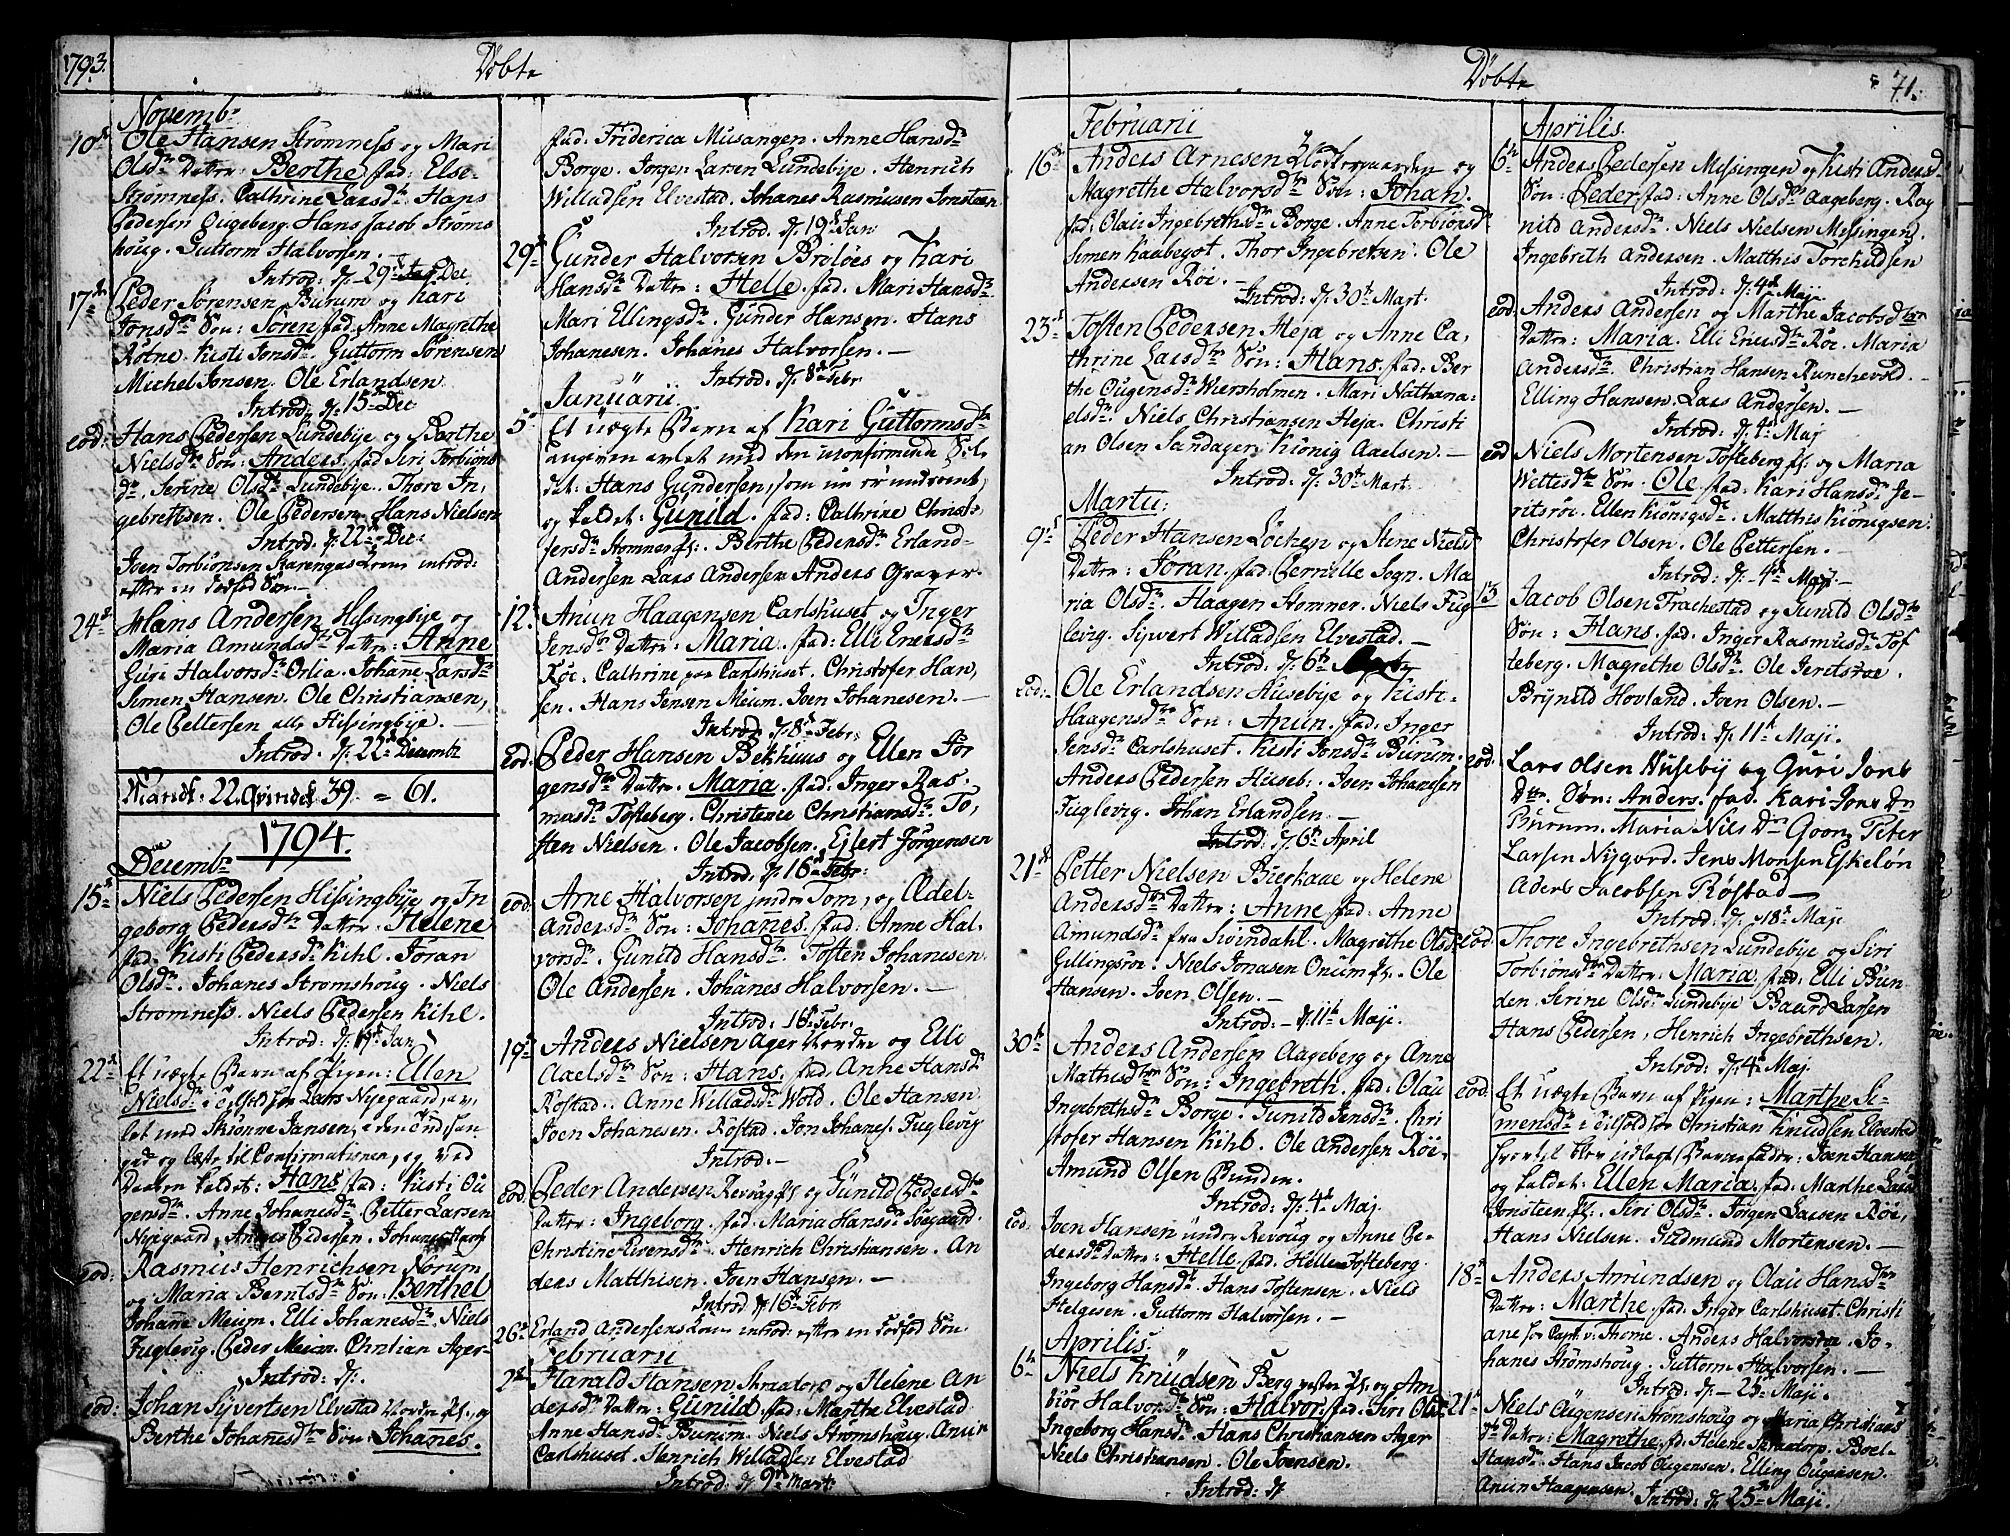 1793.
Döbte
Novembr
10de Ole Hansen Strömness og Mari
Olsdr Datter: Berthe fad: Else
Strömness. Cathrine Larsdr. Hans
Pedersen Ougeberg. Hans Jacob Ströms
houg. Guttorm Halvorsen.
Introd: d: 29de Dec
17de Peder Sörensen Burum og Kari
Jonsdr Sön: Sören fad: Anne Magrethe
Rötne. Kisti Jonsdr. Guttorm Sörensen
Michel Jonsen. Ole Erlandsen
Introd: d: 15de Dec
eod: Hans Pedersen Lundebÿe og Berthe
Nielsdr Sön: Anders. fad Siri Torbiöns
dr. Serine Olsdr Lundebÿe. Thore In,
gebrettsen. Ole Pedersen Hans Nielsen
Introd: d: 22de Dec:
Joen Torbiönsen Karengas Kone introd:
efter en Dödfød Sön.
24de Hans Andersen Hissingbÿe og
Maria Amundsdr Datter: Anne
Guri Halvorsdr Orlia. Johane Larsdr
Simen Hansen. Ole Christiansen,
Ole Pettersen alle Hissingbÿe.
Introd: d: 22de Decembr
Mandk: 22. Qvindek 39. = 61.
1794.
Decembr
15de Niels Pedersen Hissingbÿe og In
geborg Pedersdr Datter: Helene
fad: Kisti Pedersdr Kihl. Joran
Olsdr. Johanes Strömshoug. Niels
Strömness. Niels Pedersen Kihl.
Introd: d: 19de Jan
22de Et uægte Barn af Pigen: Ellen
Nielsdr
Daaben kaldet: Hans fad: Kisti Ou
gensdr. Anne Johanesdr Petter Larsen
Nÿegaard. Anders Pedersen. Johanes
eod: Rasmus Henrichsen Norum
og Maria Berntsdr Sön: Berthel
Johane Meium. Elli Johanesdr. Niels
Fuglevig Peder Meium. Chrstian Ager
Introd: d:
eod: Johan Sÿvertsen Elvestad Nordre og
Berthe Johanesdr Sön: Johanes.
fad: Friderica Musangen. Anne Hansdr
Borge. Jörgen Larsen Lundebÿe. Henrich
Willadsen Elvestad. Johanes Rasmusen Jonsteen
Introd. d: 19de Jan
29de Gunder Halvorsen Bröloes og Kari
Hansdr Datter: Helle. fad. Mari Hansdr.
Mari Ellingsdr. Gunder Hansen. Hans
Johanesen. Johanes Halvorsen.
Introd. d: 8de Febr
Januarii
5te Et uægte Barn af Kari Guttormsdr
angiven avlet med den uconfirmerede Sol
dat: Hans Gundersen, som nu er undvendt,
og kaldet: Gunild. fad: Cathrine Christ:
fersdr Homnes. Berthe Pedersdr Erland
Andersen Lars Andersen Anders Graver.
12te Anun Haagensen Carlshuset og Inger
Jensdr Datter: Maria. fad: Elli Enersdr
Röe. Cathrine paa Carlshuset. Christofer Han,
sen. Hans Jensen Meium. Joen Johanesen.
Introd d: 8de Febr.
eod: Peder Hansen Bekhuus og Ellen Jör
gensdr Datter: Maria. fad. Inger Ras.
musdr Tofteberg. Christence Christiansdr. To,
sten Nielsen. Ole Jacobsen. Eilert Jörgensen
Introd. d: 16de Febr:
eod. Arne Halvorsen nedre Tom, og Edel
Andersdr Sön: Johanes. fad: Anne Hal,
vorsdr. Gunild Hansdr. Tosten Johanesen.
Ole Andersen. Johanes Halvorsen.
Introd: 16de Febr.
19de Anders Nielsen Ager Nordre og Elli
Axelsdr Sön: Hans. fad: Anne Hansdr
Röstad. Anne Willadsdr Wold. Ole Hansen
Joen Johanesen. Röstad. Jon Johanes. Fuglevig
Introd:
eod: Peder Andersen og Gunild Pedersdr
Datter: Ingeborg. fad: Maria Hansdr Söegaard.
Christine Evensdr. Henrich Christiansen. An
ders Matthisen. Joen Hansen.
Introd d: 16de Febr
26de Erland Andersens Kone introd: efter en dödfød Sön.
Februarii
2de Harald Hansen Skradorp og Helene An
dersdr Datter: Gunild. fad: Marthe Elvestad
Anne Hansdr Burum. Niels Strömshoug. Anun
Carlshuset. Henrich Willadsen Elvestad
Introd: d: 9de Mart:
Döbte
71.
Februarii
16de Anders Arnesen Klostergaarden og
Magrethe Halvorsdr Sön: Johan.
fad: Olau Ingebrethsdr Borge. Anne Torbiönsdr
Simen Kaabegot. Thor Ingebretsen. Ole
Andersen Röe.
Introd: d: 30te Mart.
23de Tosten Pedersen Heja og Anne Ca,
thrine Larsdr Sön: Hans. fad: Ber
the Ougensdr Wiersholmen. Mari Nathana
elsdr. Niels Christiansen Heja. Christi
an Olsen Sandager. Kiönig Axelsen.
Introd: d: 30te Mart:
Martii:
9de Peder Hansen Löchen og Stine Nielsdr
Datter: Joran. fad: Pernille Sogn. Ma
ria Olsdr. Haagen Homner. Niels Fug
levig. Sÿvert Willadsen Elvestad.
Introd: d: 6te
eod: Ole Erlandsen Husebÿe og Kisti
Haagensdr Sön: Anun. fad: Inger
Jensdr Carlshuset. Kisti Jonsdr Burum.
Anders Pedersen Huseb: Joen Johanesen
Fuglevig. Johan Erlandsen.
Introd: d: 6te April
21de Petter Nielsen Bierkaae og Helene
Andersdr Datter: Anne fad: Anne
Amundsdr fra Svindahl. Magrethe Olsdr
Gillingsröe. Niels Jonasen Onum. Ole
Hansen. Joen Olsen.
Introd: d: 11te Maji.
30te Anders Andersen Aageberg og Anne
Mathisdr Sön: Ingebreth. fad: Olau
Ingebrethsdr Borge. Gunild Jensdr. Chri
stofer Hansen Kihl. Ole Andersen Röe.
Amund Olsen Bunden.
Introd: d: 4de Maj.
eod. Joen Hansen under Revoug og Anne Pe
dersdr Datter: Helle. fad. Helle Tofteberg.
Ingeborg Hansdr. Hans Tostensen. Niels
Helgesen. Guttorm Halvorsen.
Aprilis.
6te Niels Knudsen Berg vestre og Am
biör Halvorsdr Sön: Halvor. fad. Siri Olsdr
Ingeborg Hansdr. Hans Christiansen Ager
Niels Christiansen. Ole Joensen.
Introd: d:
Aprilis.
6te Anders Pedersen Messingen og Kisti Andersdr
Sön: Peder fad: Anne Olsdr Aageberg. Rag
nild Andersdr. Niels Nielsen Messingen.
Ingebreth Andersen. Matthis Torchildsen
Introd: d: 4de Maji
eod. Anders Andersen og Marthe Jacobsdr
Datter: Maria. Elli Enersdr Röe. Maria
Andersdr. Christian Hansen Runchevold.
Elling Hansen. Lars Andersen.
Introd: d: 4de Maj
eod Niels Mortensen Tofteberg og Maria
Wettesdr Sön. Ole fad: Kari Hansdr Je
ritsröe. Ellen Kiönigsdr. Matthis Kiönigsen.
Christofer Olsen. Ole Pettersen.
Introd: d: 4de Maji.
13 Jacob Olsen Trachestad og Gunild Olsdr
Sön: Hans. fad. Inger Rasmusdr Tof
teberg. Magrethe Olsdr. Ole Jeritsröe.
Brÿnild Hovland. Joen Olsen.
Introd: d: 11te Maji.
eod. Lars Olsen Husebÿ og Guri Jons
Dtr. Sön: Anders. fad. Kari Jons Dr
Burum. Maria Nils Dr Goon. Peter
Larsen Nÿgord. Jens Monsen Eskelön
Aders Jacobsen Röstad
Introd: d: 18de Maji
eod. Thore Ingebrethsen Lundebÿe og Siri
Torbiönsdr Datter: Maria. fad: Elli Bun
den. Serine Olsdr Lundebÿe Baard Larsen
Hans Pedersen, Henrich Ingebrethsen.
Introd: d: 4de Maj
eod. Et uægte Barn af Pigen: Marthe Si
mensdr i Leilof hos Christian Knudsen Elvestad
hvortil blev udlagt Barnefader: Joen Hansen
og kaldet: Ellen Maria. fad. Marthe Larsdr
Jonsteen. Siri Olsdr. Jörgen Larsen Röe,
Hans Nielsen. Gudmund Mortensen.
18de Anders Amundsen og Olau Hansdr
Datter: Marthe. fad: Inger Carlshuset. Christi
ane hos Capt. v. Thome. Anders Halvorsröe. Jo,
hanes Strömshoug. Guttorm Halvorsen.
Introd: d: 25de Maji.
21de Niels Ougensen Strömshoug og Maria Christians
dr Datter: Magrethe. fd: Helene Skradorp. Boel
Hansdr. Hans Jacob Ougensen. Elling Ougensen.
Anun Haagensen. Introd: d: 25de Maji.